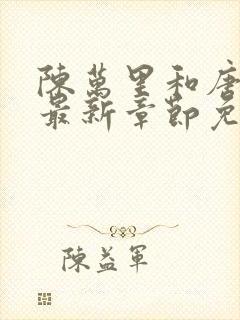 陳萬里和唐
最新章節免
陳益軍